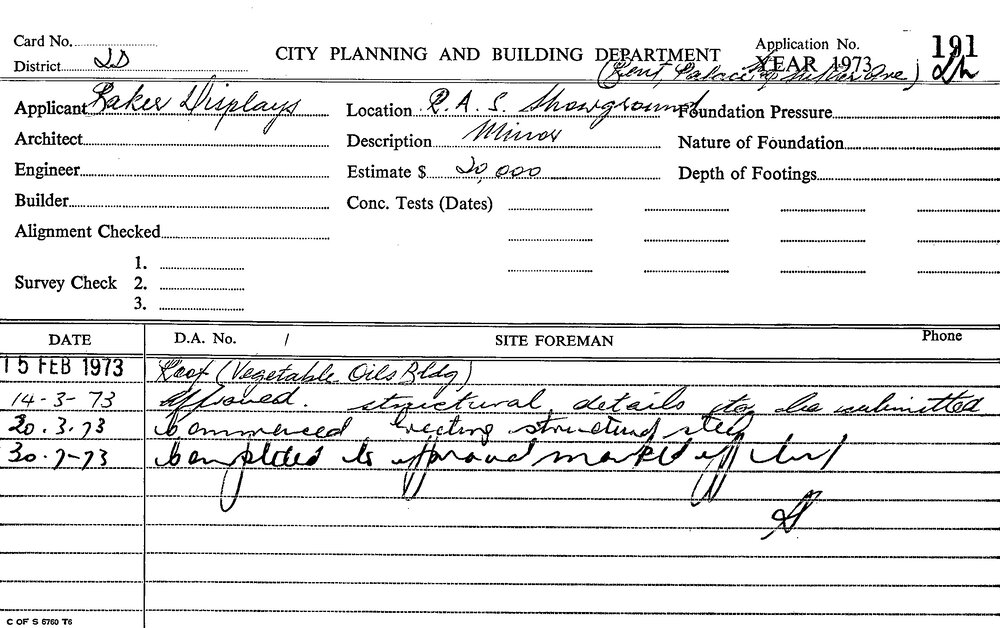 Card No.
District 2D
CITY PLANNING AND BUILDING DEPARTMENT
Application No. 191
YEAR 1973
(Kent, Palace &
Applicant Baker Displays
Location R.A.S. Showground
Foundation Pressure
Architect
Description Minor
Nature of Foundation
Engineer
Estimate $ 20,000
Depth of Footings
Builder
Conc. Tests (Dates)
Alignment Checked
Survey Check
1.
2.
3.
DATE
D.A. No. /
SITE FOREMAN
Phone
15 FEB 1973 Roof (Vegetable Oils Bldg)
14-3-73 Approved. structural details to be submitted
20.3.73 Commenced erecting structural steel
30-7-73 Completed to approval marked off
C OF S 6760 T6